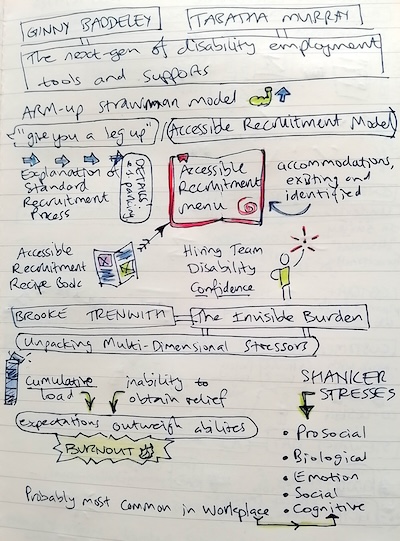 GINNY BADDELEY TABATHA MURRAY
The next-gen of disability employment
tools and supports
ARM-up strawman model
"give you a leg up" / Accessible Recruitment Model
Explanation of
Standard
Recruitment
Process
DETAILS
Accessible
Recruitment
menu
accommodations,
existing and
identified
Accessible
Recruitment
Recipe Book
Hiring Team
Disability
Confidence
BROOKE TRENWITH The Invisible Burden
Unpacking Multi-Dimensional Stressors
cumulative
load
inability to
obtain relief
expectations outweigh abilites
BURNOUT
SHANKER
STRESSES
• Prosocial
• Biological
• Emotion
• Social
• Cognitive
Probably most common in workplace